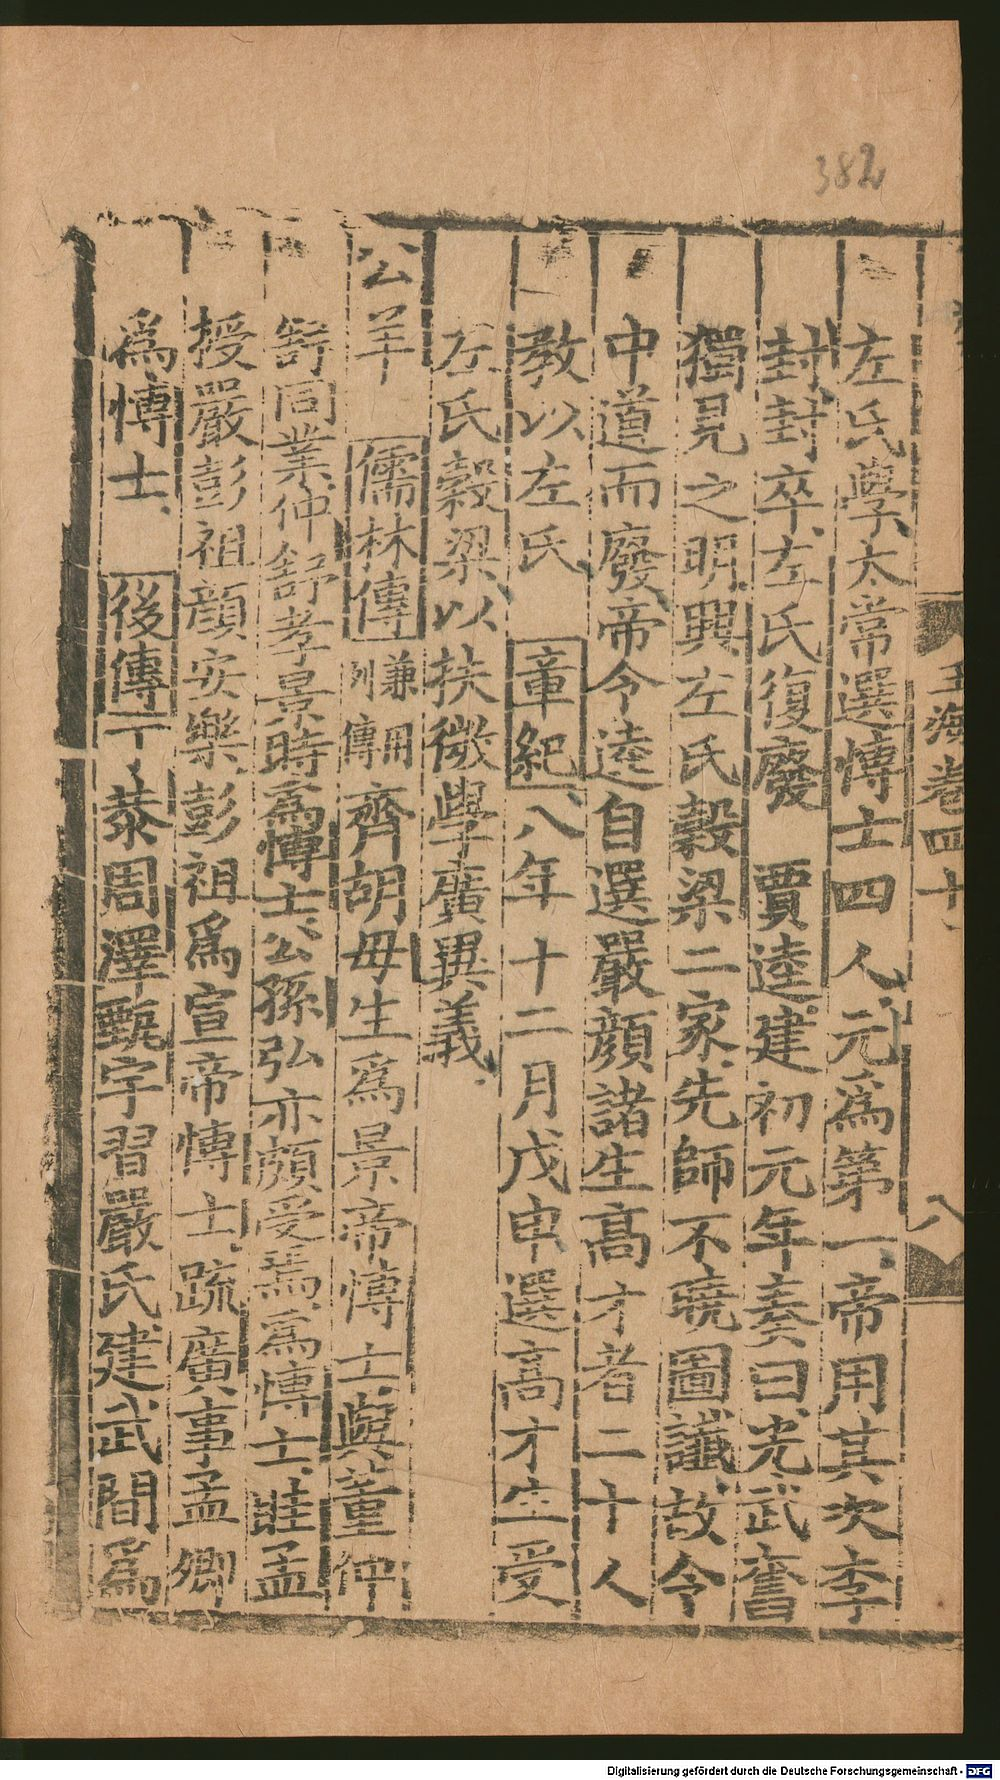 382
玉海卷四十
八
左氏學太常選博士四人元為第一帝用其次李
封封卒左氏復廢　賈逵建初元年奏曰光武奮
獨見之明興左氏穀梁二家先師不曉圖讖故令
中道而廢帝令逵自選嚴顏諸生高才者二十人
教以左氏　章紀八年十二月戊申選高才生受
左氏穀梁以扶微學廣異義
公羊　儒林傳齊胡母生為景帝博士與董仲
舒同業仲舒孝景時為博士公孫弘亦頗受焉為博士眭孟
授嚴彭祖顏安樂彭祖為宣帝博士疏廣事孟卿
為博士　後傳丁恭周澤甄宇習嚴氏建武間為
Digitalisierung gefördert durch die Deutsche Forschungsgemeinschaft - DFG